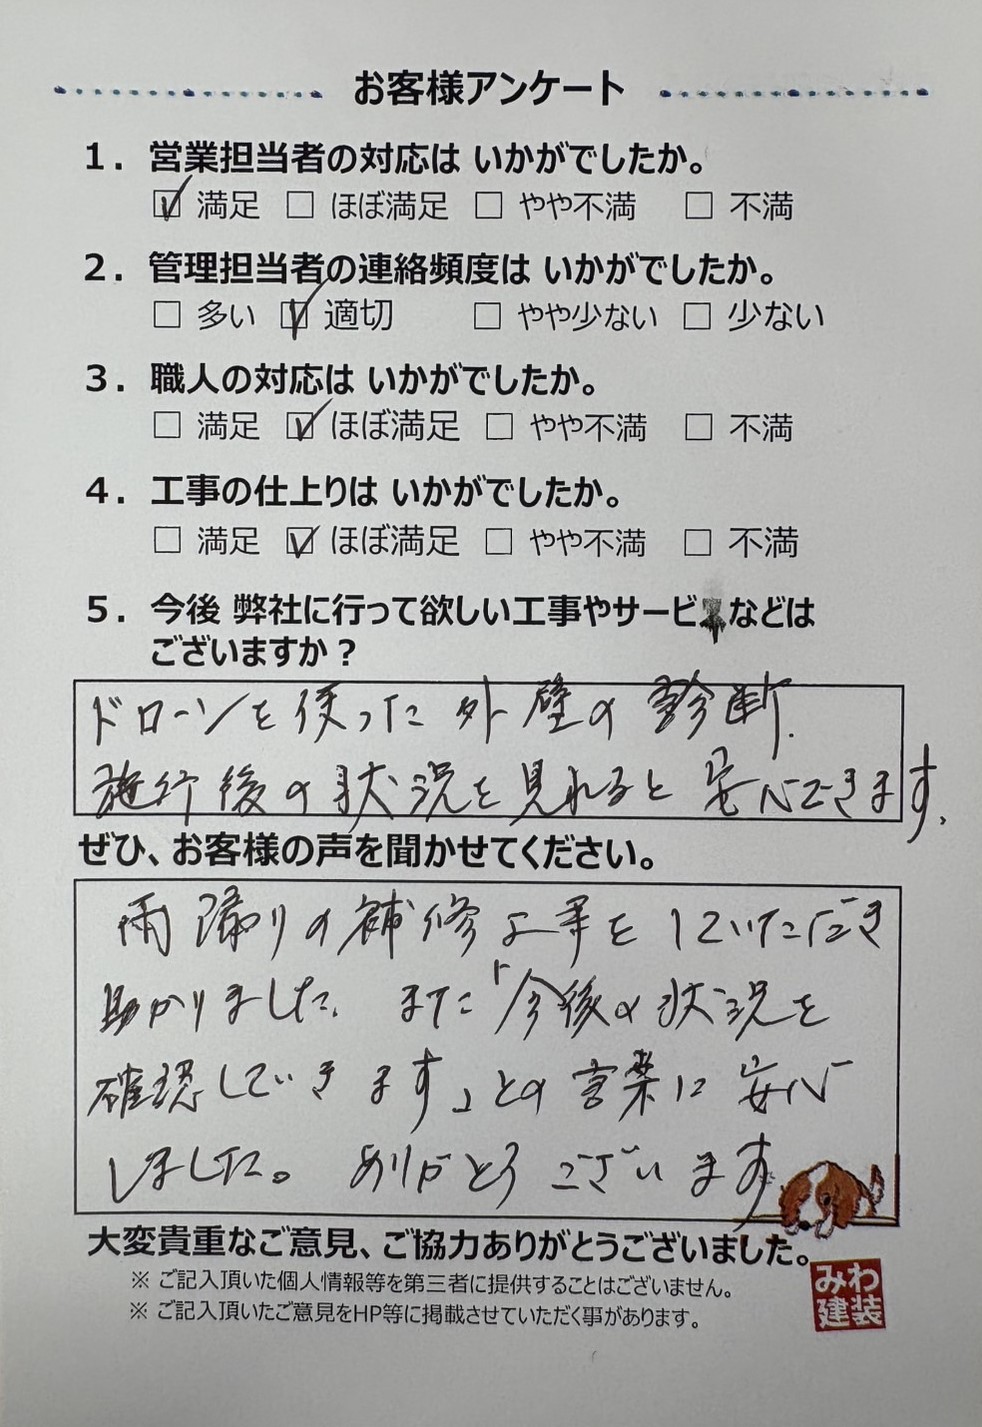 お客様アンケート
1. 営業担当者の対応は いかがでしたか。
☑ 満足 □ ほぼ満足 □ やや不満 □ 不満
2. 管理担当者の連絡頻度は いかがでしたか。
□ 多い ☑ 適切 □ やや少ない □ 少ない
3. 職人の対応は いかがでしたか。
□ 満足 ☑ ほぼ満足 □ やや不満 □ 不満
4. 工事の仕上りは いかがでしたか。
□ 満足 ☑ ほぼ満足 □ やや不満 □ 不満
5. 今後 弊社に行って欲しい工事やサービ などは
ございますか？
ドローンを使った外壁の診断.
施行後の状況を見れると安心できます、
ぜひ、お客様の声を聞かせてください。
雨漏りの補修工事をしていただき
助かりました、また「今後の状況を
確認していきます」との言葉に安心
しました。ありがとうございます
大変貴重なご意見、ご協力ありがとうございました。
※ ご記入頂いた個人情報等を第三者に提供することはございません。
※ ご記入頂いたご意見をHP等に掲載させていただく事があります。
みわ
建装